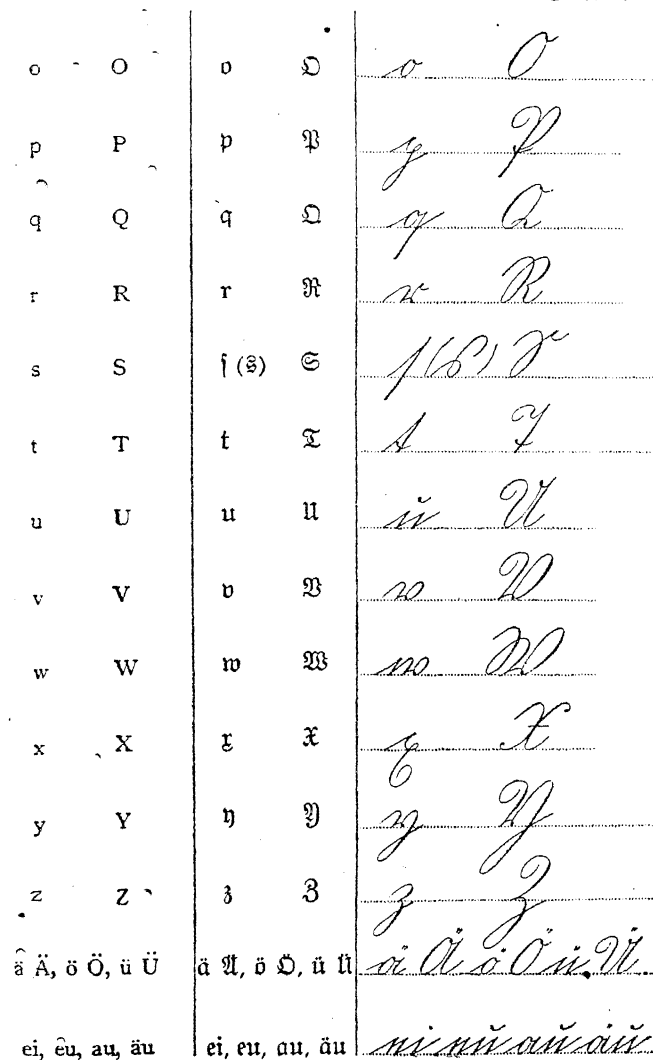 o O o O o O
p P p P p P
q Q q Q q Q
r R r R r R
s S ſ (s) S ſ (s) S
t T t T t T
u U u U u U
v V v V v V
w W w W w W
x X x X x X
y Y y Y y Y
z Z z Z z Z
ä Ä, ö Ö, ü Ü ä Ä, ö Ö, ü Ü ä Ä ö Ö ü Ü
ei, eu, au, äu ei, eu, au, äu ei eu au äu